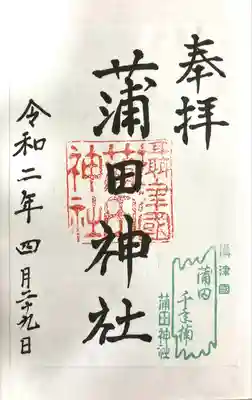 奉拝
蒲田神社
令和二年四月二十九日
攝津國
蒲田
神社
攝津國
蒲田
千年楠
蒲田神社